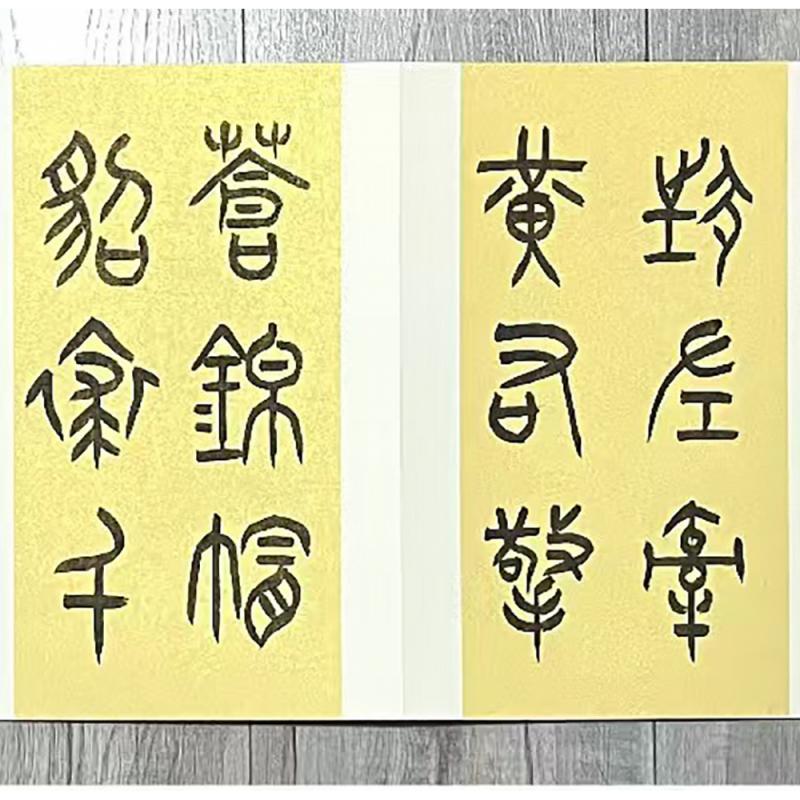 狂左牽
黃右擎
蒼錦帽
貂裘千